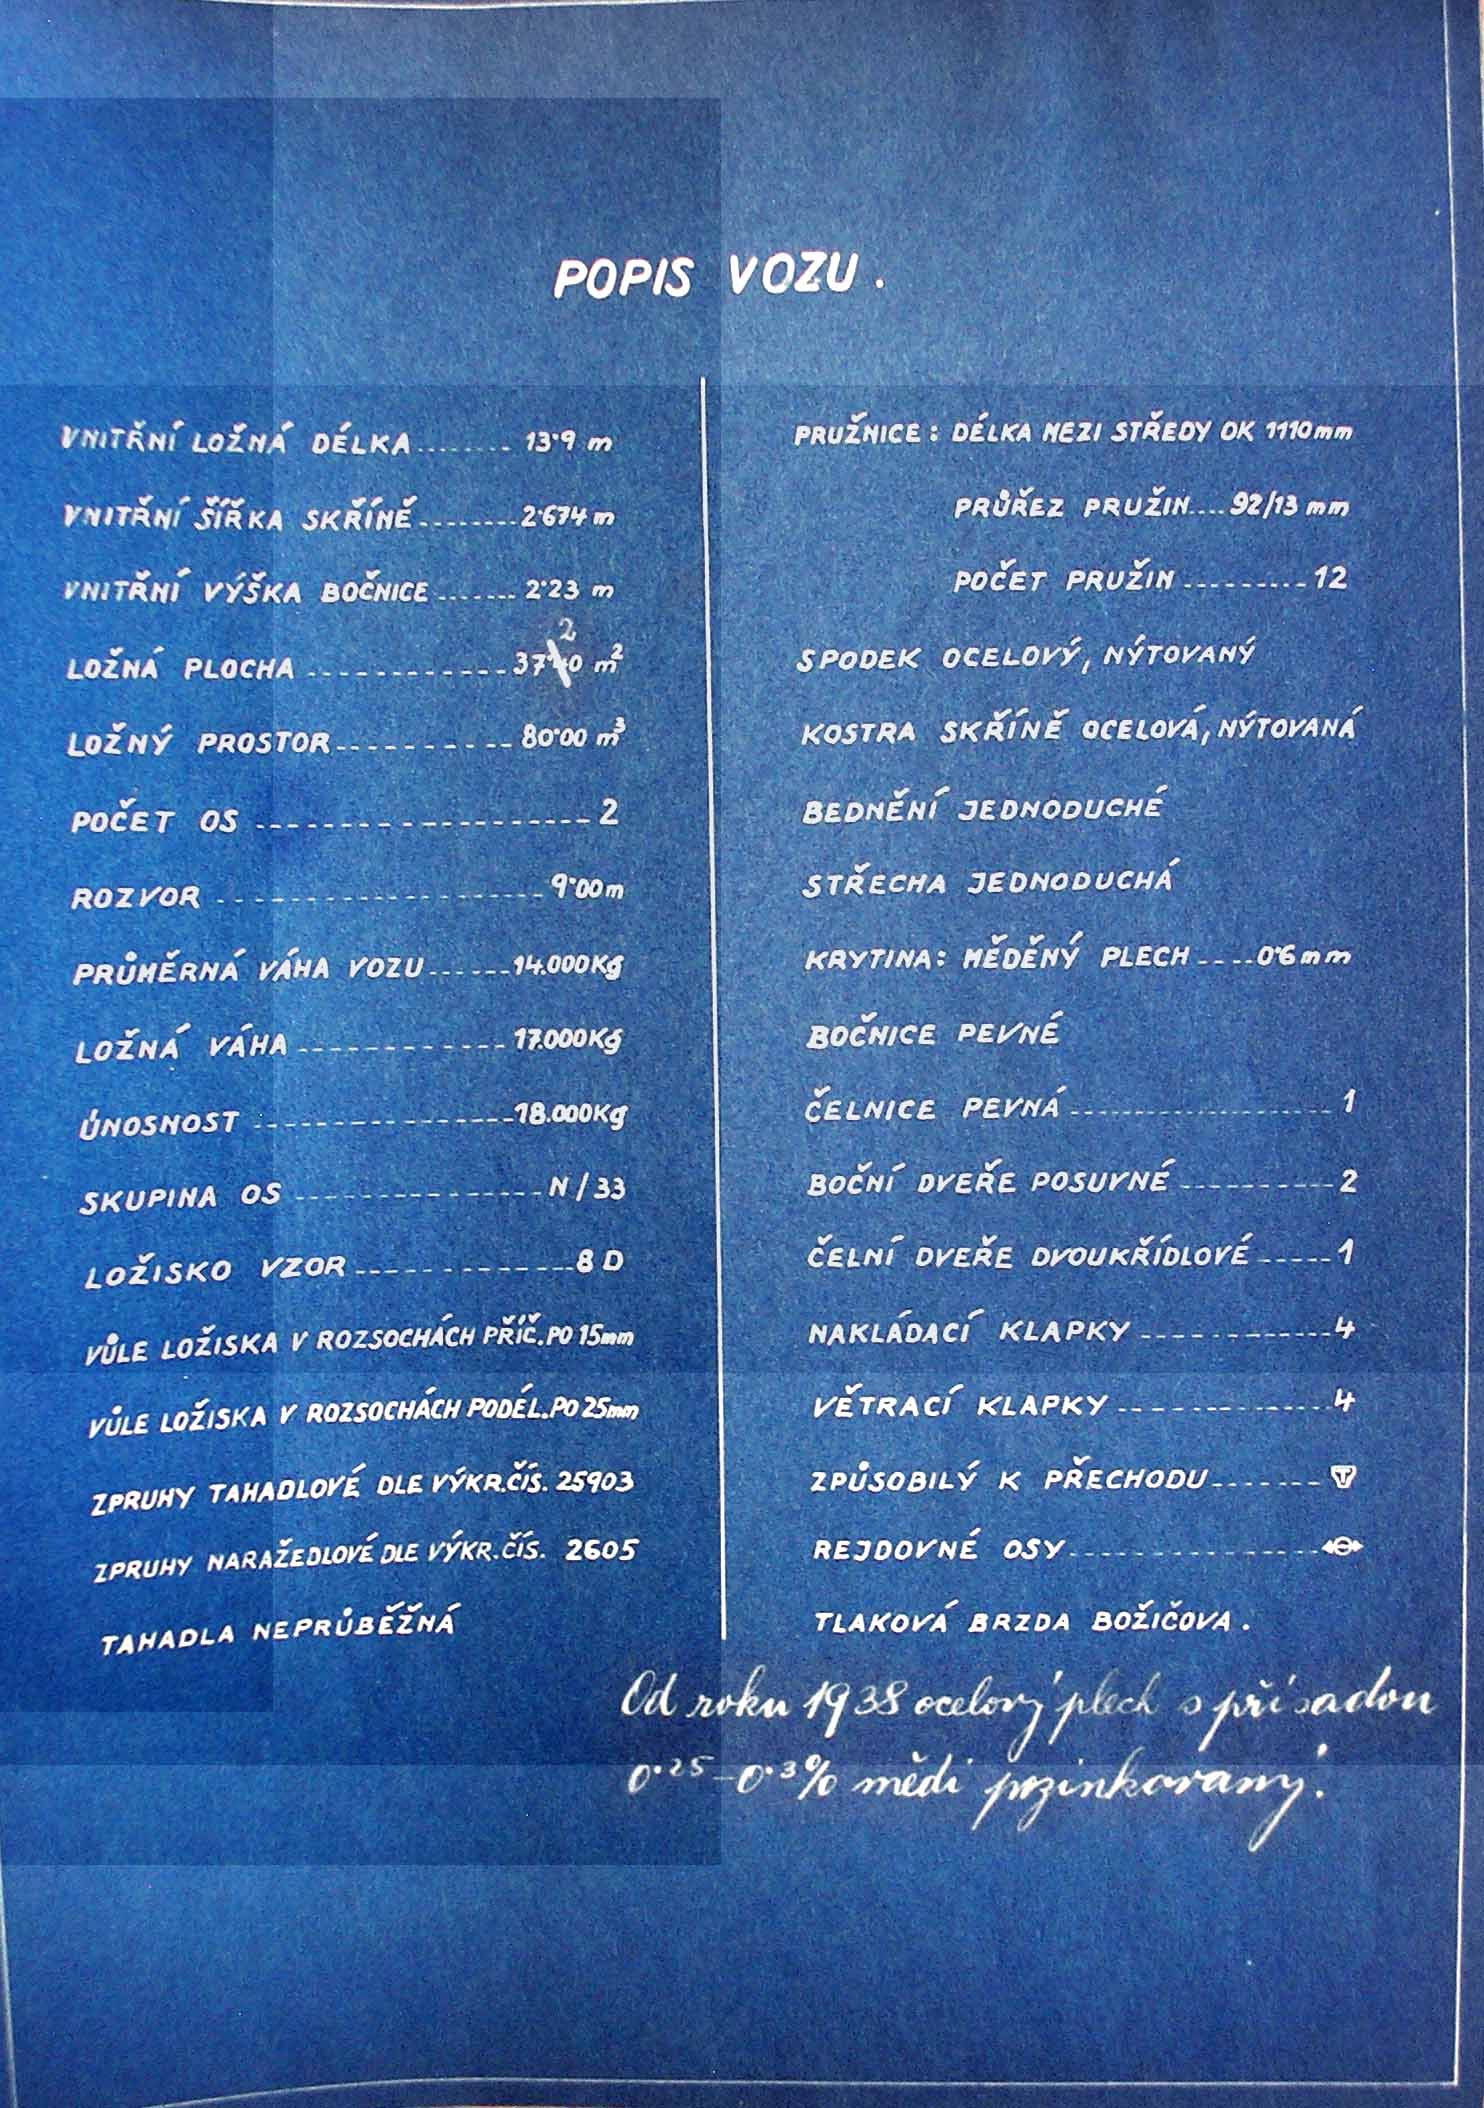 POPIS VOZU.
VNITŘNÍ LOŽNÁ DÉLKA........ 13·9 m
VNITŘNÍ ŠÍŘKA SKŘÍNĚ........2·674 m
VNITŘNÍ VÝŠKA BOČNICE....... 2·23 m
2
LOŽNÁ PLOCHA ............37·40 m²
LOŽNÝ PROSTOR............ 80·00 m³
POČET OS ........................2
ROZVOR ........................9·00 m
PRŮMĚRNÁ VÁHA VOZU......14.000Kg
LOŽNÁ VÁHA ...............17.000Kg
ÚNOSNOST ...................18.000Kg
SKUPINA OS ..................N/33
LOŽISKO VZOR ................8 D
VŮLE LOŽISKA V ROZSOCHÁCH PŘÍČ. PO 15mm
VŮLE LOŽISKA V ROZSOCHÁCH PODÉL. PO 25mm
ZPRUHY TAHADLOVÉ DLE VÝKR.ČÍS. 25903
ZPRUHY NARAŽEDLOVÉ DLE VÝKR.ČÍS. 2605
TAHADLA NEPRŮBĚŽNÁ
PRUŽNICE: DÉLKA MEZI STŘEDY OK 1110 mm
PRŮŘEZ PRUŽIN....92/13 mm
POČET PRUŽIN .........12
SPODEK OCELOVÝ, NÝTOVANÝ
KOSTRA SKŘÍNĚ OCELOVÁ, NÝTOVANÁ
BEDNĚNÍ JEDNODUCHÉ
STŘECHA JEDNODUCHÁ
KRYTINA: MĚDĚNÝ PLECH ....0·6 mm
BOČNICE PEVNÉ
ČELNICE PEVNÁ ................... 1
BOČNÍ DVEŘE POSUVNÉ ........... 2
ČELNÍ DVEŘE DVOUKŘÍDLOVÉ .....1
NAKLÁDACÍ KLAPKY .............4
VĚTRACÍ KLAPKY ................4
ZPŮSOBILÝ K PŘECHODU........ T
REJDOVNÉ OSY..................
TLAKOVÁ BRZDA BOŽIČOVA.
Od roku 1938 ocelový plech s přísadou
0·25 – 0·3% mědi pozinkovaný.